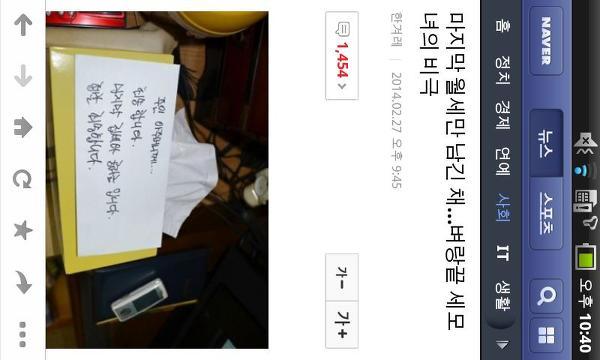 오후 10:40
NAVER
뉴스
스포츠
홈 정치 경제 연예 사회 IT 생활
마지막 월세만 남긴 채...벼랑끝 세모
녀의 비극
한겨레 | 2014.02.27 오후 9:45
1,454
가-
가+
주인 아주머니께...
죄송합니다.
마지막 집세와 공과금 입니다.
정말 죄송합니다.